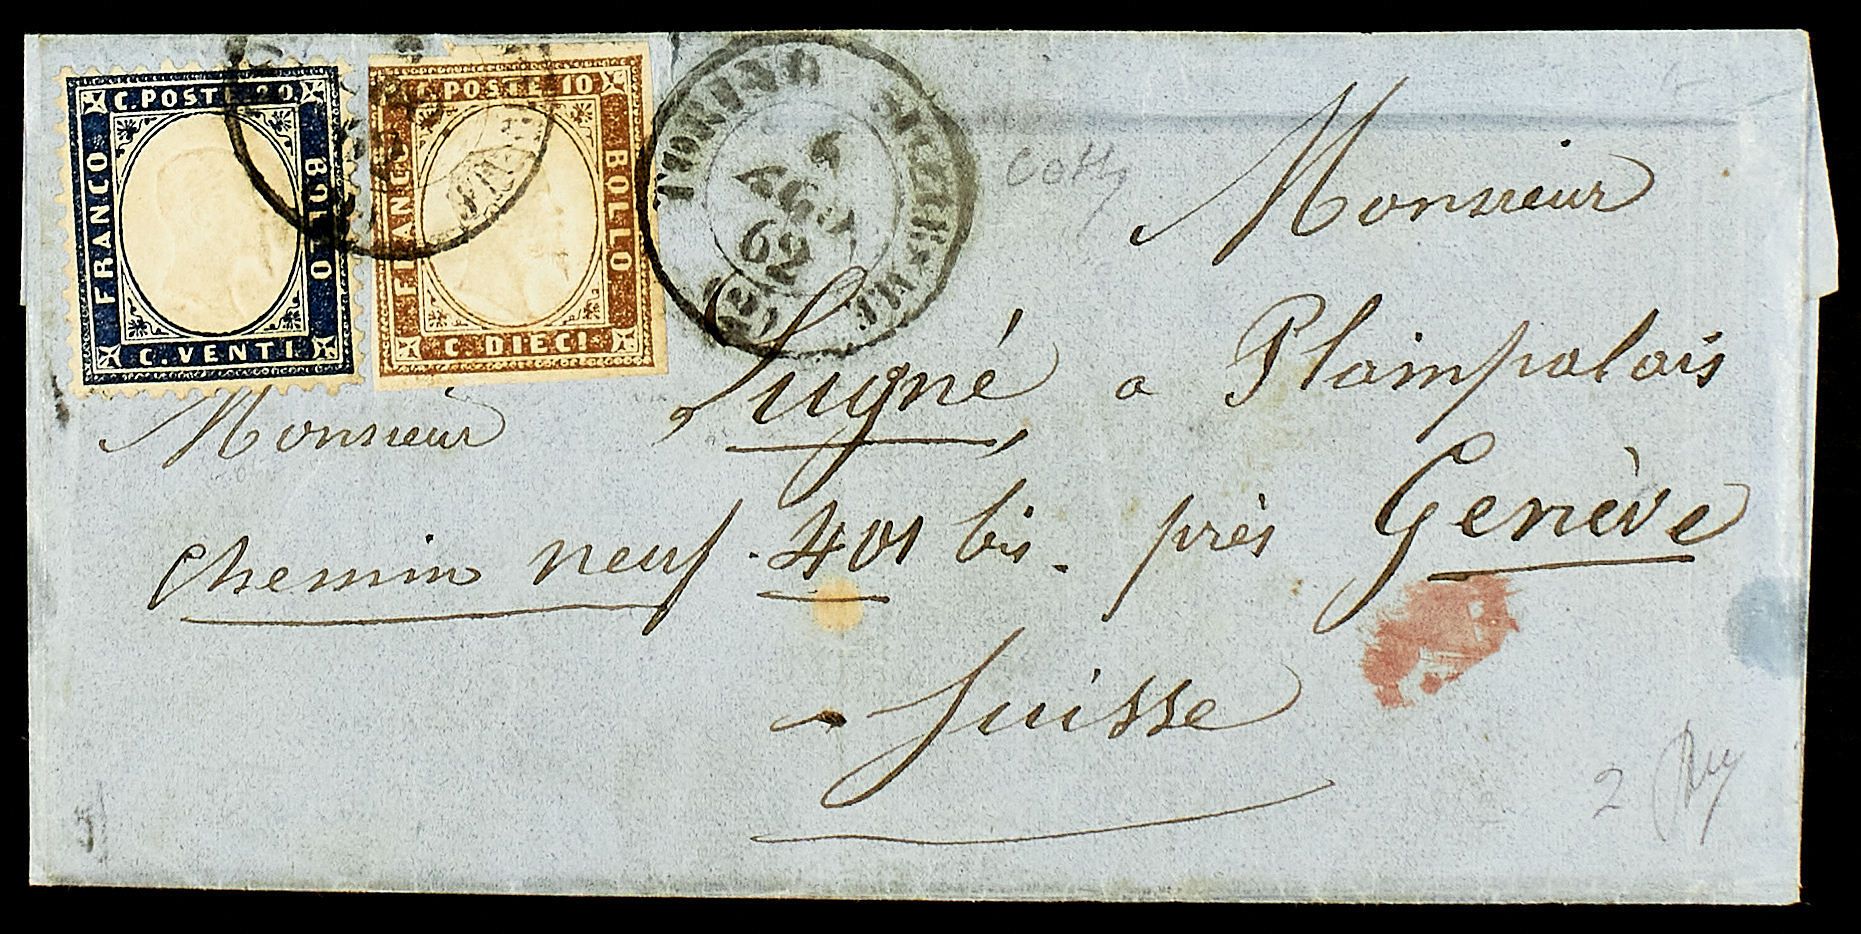 C. POSTE 20
FRANCO
BOLLO
C. VENTI
C. POSTE 10
FRANCO
BOLLO
C. DIECI
TORINO
62
Monsieur
Monsieur Lugné, a Plaimpalais
Chemin neuf. 401 bis. près Genève
Suisse
2